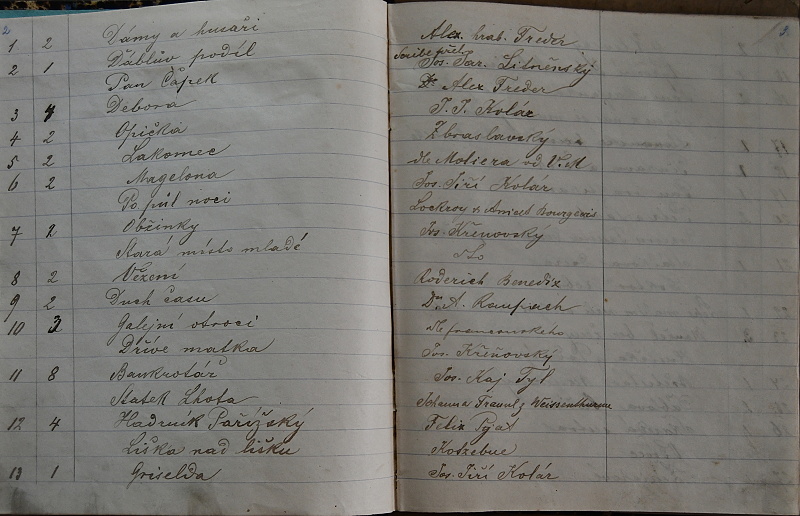 2
1 2 Dámy a husaři Alex. hrab. Freder
2 1 Ďáblův podíl Scribe přel. Jos. Jar. Litněnský
Pan Čapek Dr Alex Freder
3 4 Debora J. J. Kolár
4 2 Opička Zbraslavský
5 2 Lakomec dle Moliera od V.
6 2 Magelona Jos. Jiří Kolár
Po půl noci Lockroy & Anicet Bourgeois
7 2 Obžinky Jos. Křenovský
Stará místo mladé
8 2 Vězení Roderich Benedix
9 2 Duch času Dr. A. Raupach
10 3 Galejní otroci dle francouzského
Dříve matka Jos. Křeňovský
11 8 Bankrotář Jos. Kaj Tyl
Statek Lhota Johanna z Weissenthurnu
12 4 Hadrník Pařížský Felix Pyat
Liška nad lišku Kotzebue
13 1 Griselda Jos. Jiří Kolár